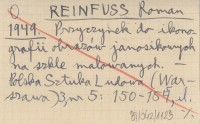 O REINFUSS Roman
1949. Przyczynek do ikono-
grafii obrazów janosikowych
na szkle malowanych. –
Polska Sztuka Ludowa (War-
szawa) 3, nr 5: 150-155, il.